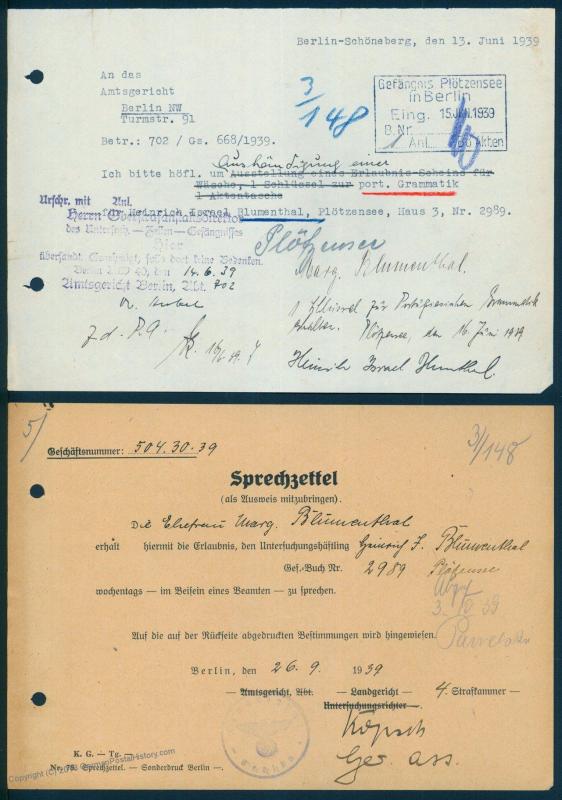 Berlin-Schöneberg, den 13. Juni 1939
An das
Amtsgericht
Berlin NW
Turmstr. 91
3/148
Gefängnis Plötzensee
in Berlin
Eing. 15. JUNI 1939
B.Nr.
1 Anl. Akten
Betr.: 702 / Gs. 668/1939.
Aushändigung einer
Ich bitte höfl. um Ausstellung eines Erlaubnis-Scheins für
Wäsche, 1 Schlüssel zur port. Grammatik
1 Aktentasche
für Heinrich Israel Blumenthal, Plötzensee, Haus 3, Nr. 2989.
Urschr. mit Anl.
Herrn
des Untersuch.-Gefängnisses
Hier
übersandt. falls dort keine Bedenken.
Berlin NW 40, den 14.6.39
Amtsgericht Berlin, Abt. 702
Plötzensee
Marg. Blumenthal.
1 Schlüssel zur Portugiesischen Grammatik
erhalten. Plötzensee, den 16. Juni 1939
Heinrich Israel
z. d. P. A.
5/
3/148
Geschäftsnummer: 504.30.39
Sprechzettel
(als Ausweis mitzubringen).
Die Ehefrau Marg. Blumenthal
erhält hiermit die Erlaubnis, den Untersuchungshäftling Heinrich I. Blumenthal
Gef.-Buch Nr. 2989 Plötzensee
wochentags — im Beisein eines Beamten — zu sprechen.
Auf die auf der Rückseite abgedruckten Bestimmungen wird hingewiesen.
Berlin, den 26.9. 1939
— Amtsgericht, Abt. — Landgericht — 4. Strafkammer —
Untersuchungsrichter —
Ger. Ass.
K. G. — Tg. —
Nr. 78. Sprechzettel. — Sonderdruck Berlin —.